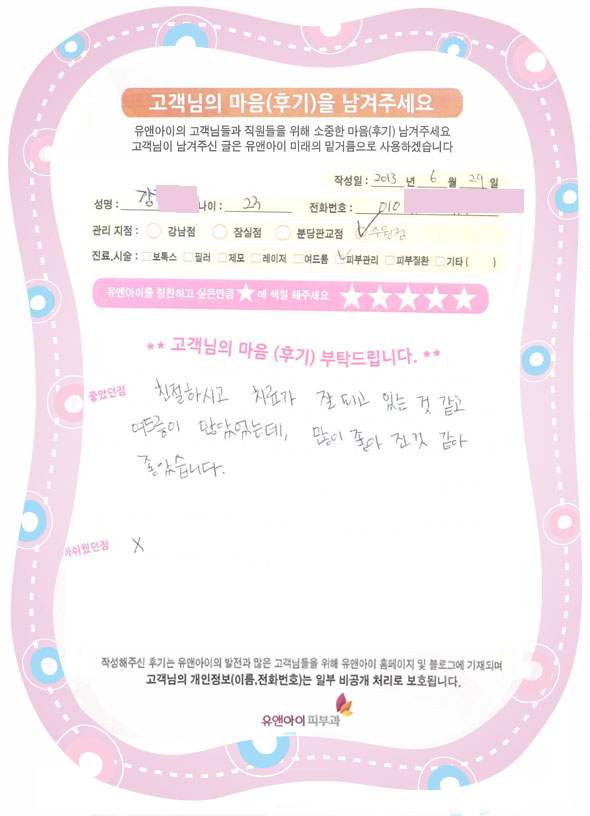 고객님의 마음(후기)을 남겨주세요
유앤아이의 고객님들과 직원들을 위해 소중한 마음(후기) 남겨주세요
고객님이 남겨주신 글은 유앤아이 미래의 밑거름으로 사용하겠습니다
작성일 : 2013 년 6 월 29 일
성명 : 강 나이 : 23 전화번호 : 010
관리 지점 : 강남점 잠실점 분당판교점 수원점
진료,시술 : 보톡스 필러 제모 레이저 여드름 피부관리 피부질환 기타 ( )
유앤아이를 칭찬하고 싶은만큼 ★에 색칠 해주세요. ★★★★★
** 고객님의 마음 (후기) 부탁드립니다. **
좋았던점 친절하시고 치료가 잘 되고 있는 것 같고
여드름이 많았었는데, 많이 좋아 진것 같아
좋았습니다.
아쉬웠던점 X
작성해주신 후기는 유앤아이의 발전과 많은 고객님들을 위해 유앤아이 홈페이지 및 블로그에 기재되며
고객님의 개인정보(이름,전화번호)는 일부 비공개 처리로 보호됩니다.
유앤아이피부과